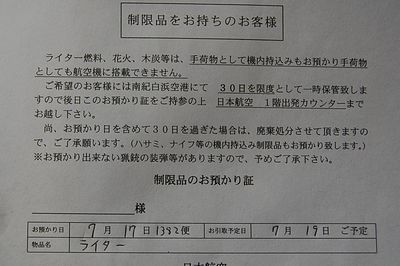 制限品をお持ちのお客様
ライター燃料、花火、木炭等は、手荷物として機内持込みもお預かり手荷物
としても航空機に搭載できません。
ご希望のお客様には南紀白浜空港にて ３０日を限度として一時保管致しま
すので後日このお預かり証をご持参の上 日本航空 １階出発カウンターまで
お越し下さい。
尚、お預かり日を含めて３０日を過ぎた場合は、廃棄処分させて頂きますの
で、ご了承願います。（ハサミ、ナイフ等の機内持込み制限品もお預かり致します。）
※お預かり出来ない猟銃の装弾等がありますので、予めご了承下さい。
制限品のお預かり証
様
お預かり日 7月17日1382便 お引取予定日 7月19日ご予定
物品名 ライター
日本航空